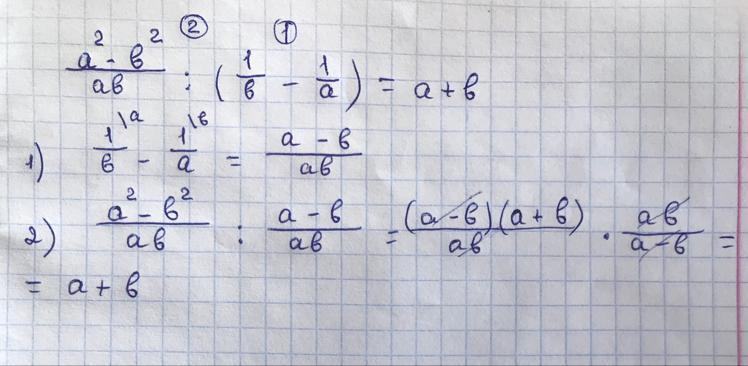 ② ①
(a² - в²)/(aв) : (1/в - 1/a) = a + в
1) 1\ᵃ/в - 1\ᵇ/a = (a - в)/(aв)
2) (a² - в²)/(aв) : (a - в)/(aв) = ((a - в)(a + в))/(aв) · (aв)/(a - в) =
= a + в